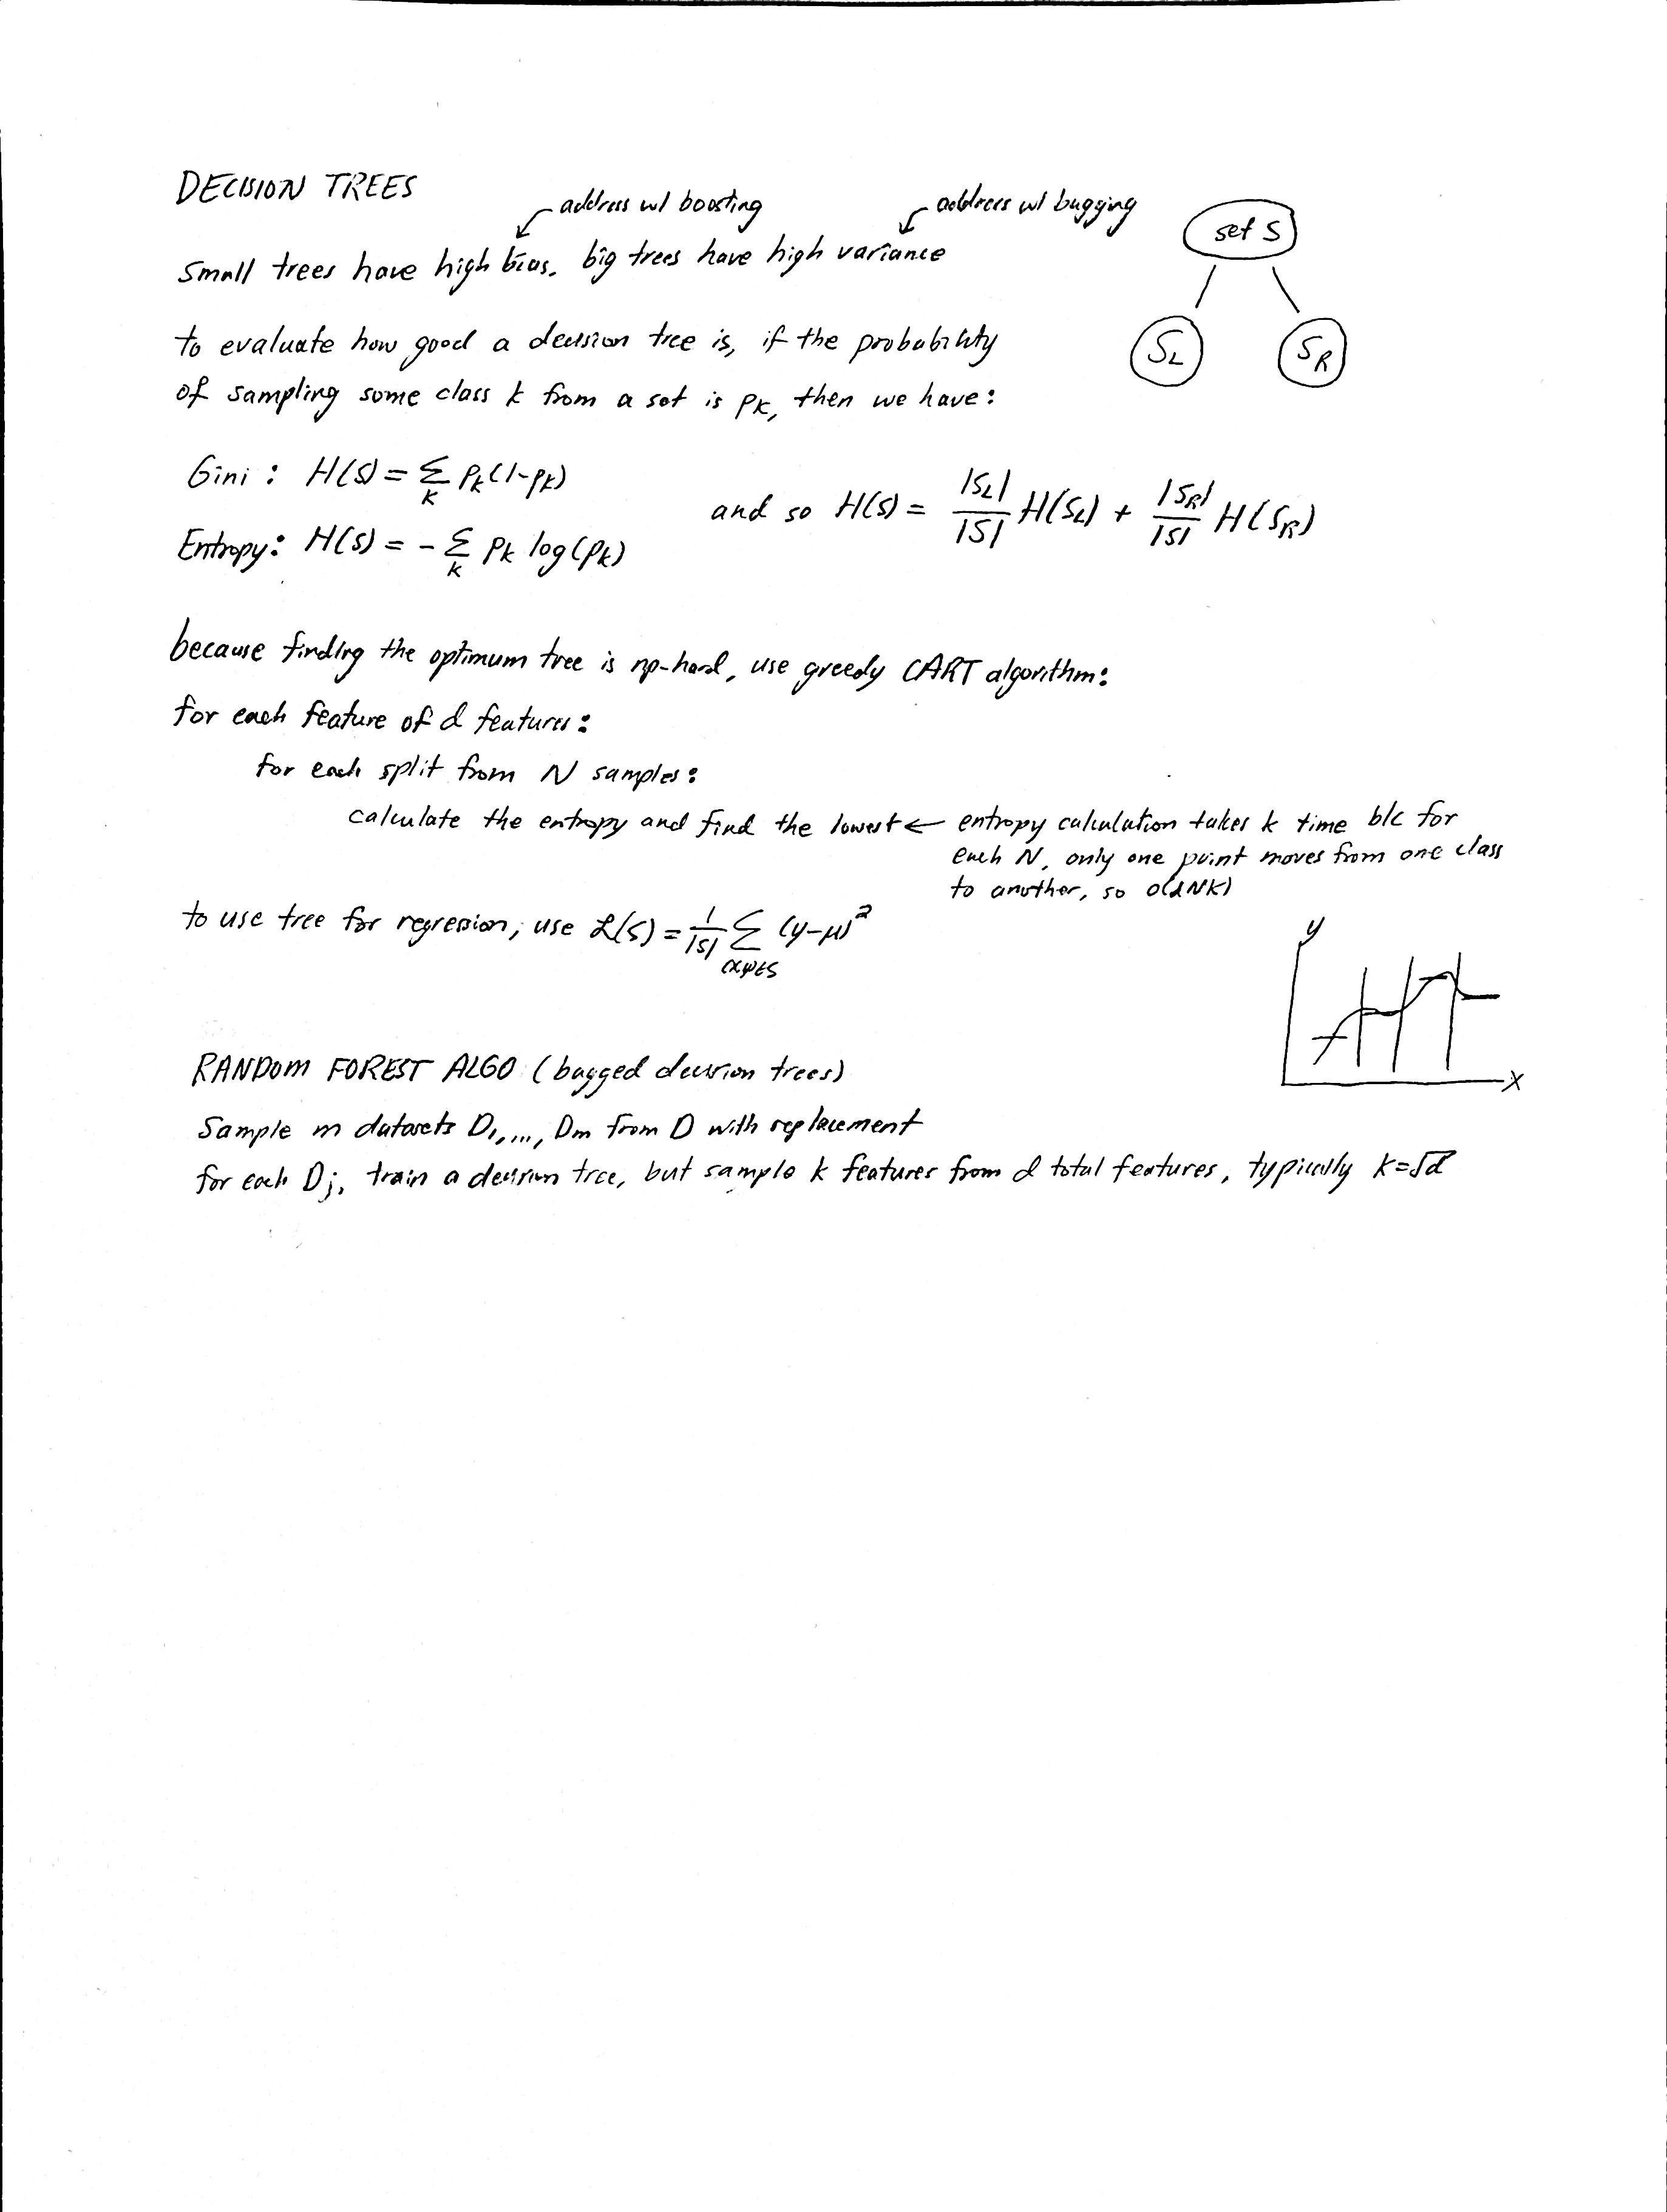 DECISION TREES
address w/ boosting
address w/ bagging
small trees have high bias, big trees have high variance
set S
S_L
S_R
to evaluate how good a decision tree is, if the probability
of sampling some class k from a set is p_k, then we have:
Gini: H(S) = Σ_k p_k(1-p_k)
and so H(S) = |S_L|/|S| H(S_L) + |S_R|/|S| H(S_R)
Entropy: H(S) = - Σ_k p_k log(p_k)
because finding the optimum tree is np-hard, use greedy CART algorithm:
for each feature of d features:
for each split from N samples:
calculate the entropy and find the lowest ← entropy calculation takes k time b/c for
each N, only one point moves from one class
to another, so O(dNK)
to use tree for regression, use L(S) = 1/|S| Σ_{(x,y)∈S} (y-μ)²
y
x
RANDOM FOREST ALGO (bagged decision trees)
Sample m datasets D_1,..., D_m from D with replacement
for each D_j, train a decision tree, but sample k features from d total features, typically k=√d